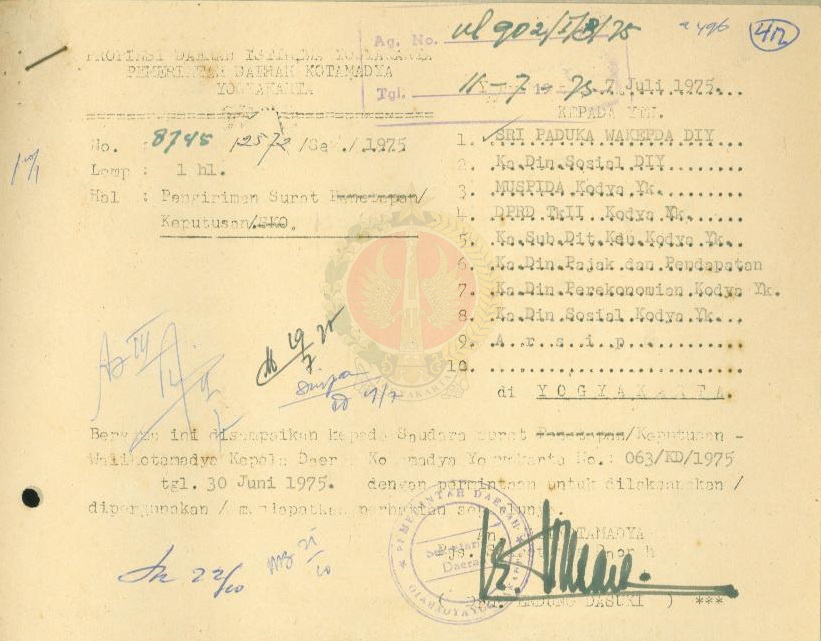 Ag. No. vl 902/I/B/75
412
PROPINSI DAERAH ISTIMEWA YOGYAKARTA
PEMERINTAH DAERAH KOTAMADYA
YOGYAKARTA
Tgl. 11-7-1975
7 Juli 1975.
KEPADA YTH.
No. : 8745 12572 /Sek/1975
Lamp : 1 hl.
Hal : Pengiriman Surat Penetapan/
Keputusan/SKO.
1. SRI PADUKA WAKEPDA DIY
2. Ka Din Sosial DIY
3. MUSPIDA Kodya Yk.
4. DPRD TkII Kodya Yk.
5. Ka Sub Dit Kdu Kodya Yk.
6. Ka Din Pajak dan Pendapatan
7. Ka Din Perekonomian Kodya Yk.
8. Ka Din Sosial Kodya Yk.
9. A r s i p
10.
di Y O G Y A K A R T A.
Bersama ini disampaikan kepada Saudara surat Penetapan/Keputusan -
Walikotamadya Kepala Daerah Kotamadya Yogyakarta No.: 063/KD/1975
tgl. 30 Juni 1975. dengan permintaan untuk dilaksanakan /
dipergunakan / mendapatkan perhatian seperlunya.
PEMERINTAH DAERAH
Sekretariat
Daerah
KOTAMADYA
Pjs. Daerah
DASUKI ) ***
22/10
21/10